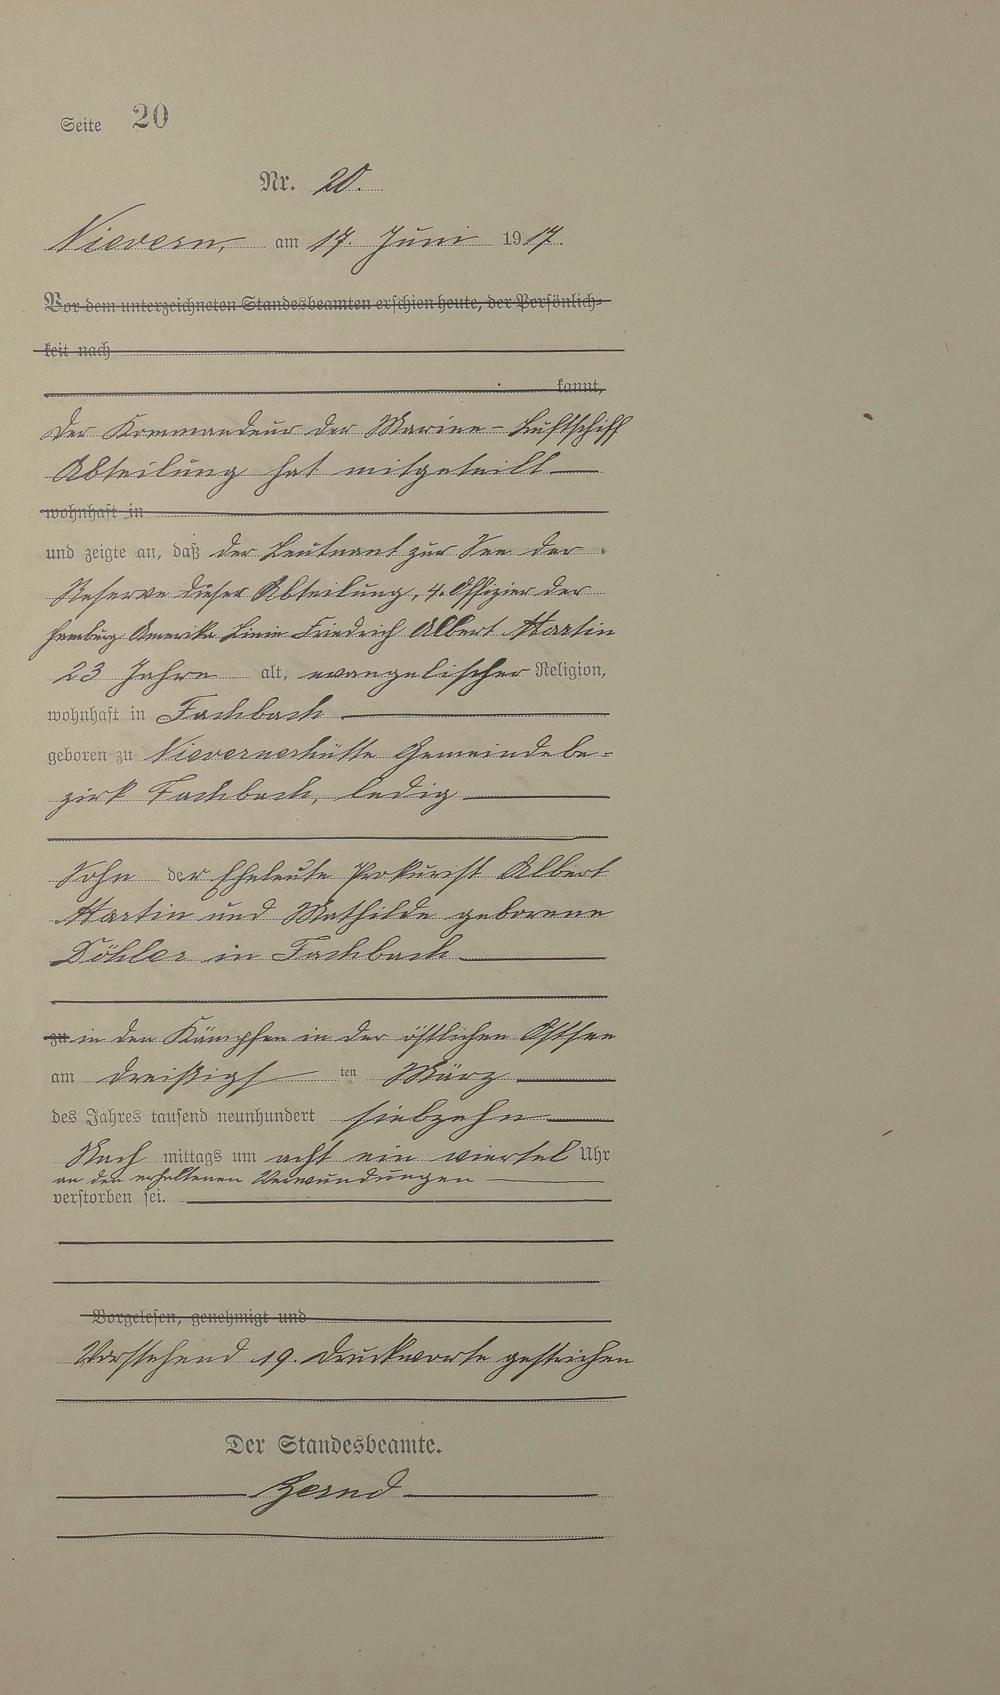 Seite 20
Nr. 20.
Nievern, am 17. Juni 1917.
Vor dem unterzeichneten Standesbeamten erschien heute, der Persönlich-
keit nach
kannt,
Der Kommandeur der Marine-Luftschiff
Abteilung hat mitgeteilt
wohnhaft in
und zeigte an, daß der Leutnant zur See der
Reserve dieser Abteilung, 4. Offizier der
Hamburg Amerika Linie Friedrich Albert Martin
23 Jahre alt, evangelischer Religion,
wohnhaft in Fachbach
geboren zu Nievernerhütte Gemeindebe-
zirk Fachbach, ledig
Sohn der Eheleute Prokurist Albert
Martin und Mathilde geborene
Döhler in Fachbach
zu in den Kämpfen in der östlichen Ostsee
am dreißigs ten März
des Jahres tausend neunhundert siebzehn
Nach mittags um acht ein viertel Uhr
an den erhaltenen Verwundungen
verstorben sei.
Vorgelesen, genehmigt und
Vorstehend 19. Druckworte gestrichen
Der Standesbeamte.